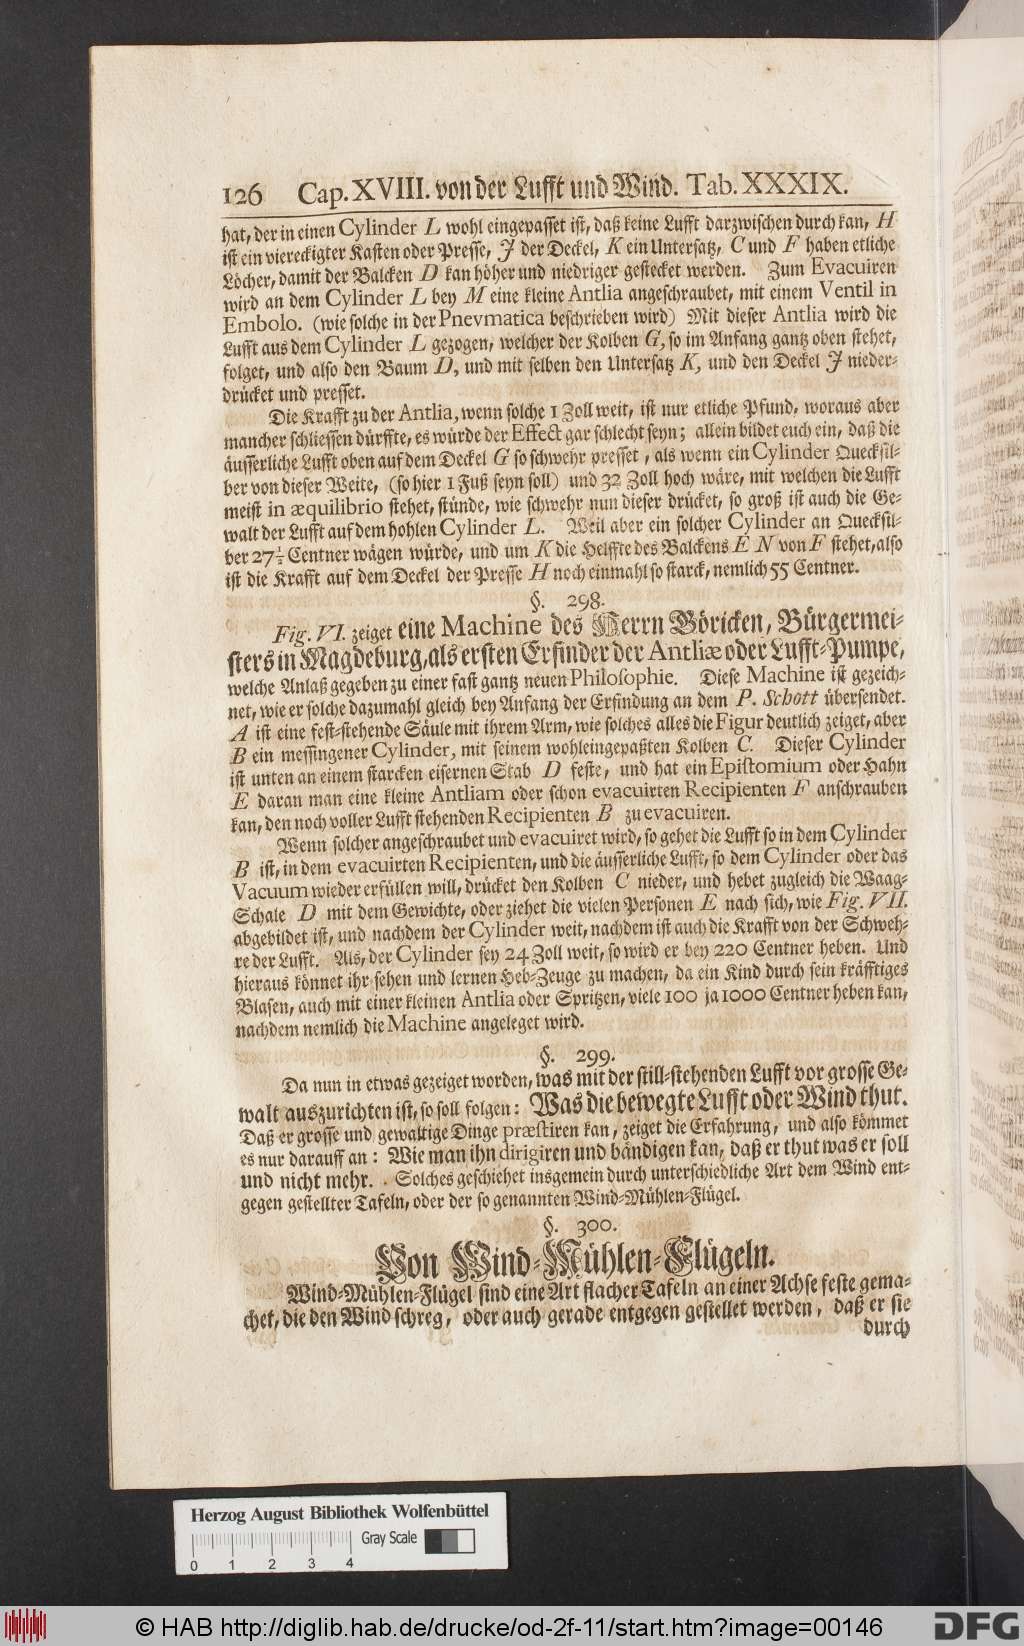 126 Cap. XVIII. von der Lufft und Wind. Tab. XXXIX.
hat, der in einen Cylinder L wohl eingepasset ist, daß keine Lufft darzwischen durch kan, H
ist ein viereckigter Kasten oder Presse, J der Deckel, K ein Untersatz, C und F haben etliche
Löcher, damit der Balcken D kan höher und niedriger gestecket werden. Zum Evacuiren
wird an dem Cylinder L bey M eine kleine Antlia angeschraubet, mit einem Ventil in
Embolo. (wie solche in der Pnevmatica beschrieben wird) Mit dieser Antlia wird die
Lufft aus dem Cylinder L gezogen, welcher der Kolben G, so im Anfang gantz oben stehet,
folget, und also den Baum D, und mit selben den Untersatz K, und den Deckel J nieder-
drücket und presset.
Die Krafft zu der Antlia, wenn solche 1 Zoll weit, ist nur etliche Pfund, woraus aber
mancher schliessen dürffte, es würde der Effect gar schlecht seyn; allein bildet euch ein, daß die
äusserliche Lufft oben auf dem Deckel G so schwehr presset, als wenn ein Cylinder Quecksil-
ber von dieser Weite, (so hier 1 Fuß seyn soll) und 32 Zoll hoch wäre, mit welchen die Lufft
meist in æquilibrio stehet, stünde, wie schwehr nun dieser drücket, so groß ist auch die Ge-
walt der Lufft auf dem hohlen Cylinder L. Weil aber ein solcher Cylinder an Quecksil-
ber 27½ Centner wägen würde, und um K die Helffte des Balckens E N von F stehet, also
ist die Krafft auf dem Deckel der Presse H noch einmahl so starck, nemlich 55 Centner.
§. 298.
Fig. VI. zeiget eine Machine des Herrn Göricken, Bürgermei-
sters in Magdeburg, als ersten Erfinder der Antliæ oder Lufft-Pumpe,
welche Anlaß gegeben zu einer fast gantz neuen Philosophie. Diese Machine ist gezeich-
net, wie er solche dazumahl gleich bey Anfang der Erfindung an dem P. Schott übersendet.
A ist eine fest-stehende Säule mit ihrem Arm, wie solches alles die Figur deutlich zeiget, aber
B ein messingener Cylinder, mit seinem wohleingepaßten Kolben C. Dieser Cylinder
ist unten an einem starcken eisernen Stab D feste, und hat ein Epistomium oder Hahn
E daran man eine kleine Antliam oder schon evacuirten Recipienten F anschrauben
kan, den noch voller Lufft stehenden Recipienten B zu evacuiren.
Wenn solcher angeschraubet und evacuiret wird, so gehet die Lufft so in dem Cylinder
B ist, in dem evacuirten Recipienten, und die äusserliche Lufft, so dem Cylinder oder das
Vacuum wieder erfüllen will, drücket den Kolben C nieder, und hebet zugleich die Waag-
Schale D mit dem Gewichte, oder ziehet die vielen Personen E nach sich, wie Fig. VII.
abgebildet ist, und nachdem der Cylinder weit, nachdem ist auch die Krafft von der Schweh-
re der Lufft. Als, der Cylinder sey 24 Zoll weit, so wird er bey 220 Centner heben. Und
hieraus könnet ihr sehen und lernen Heb-Zeuge zu machen, da ein Kind durch sein kräfftiges
Blasen, auch mit einer kleinen Antlia oder Spritzen, viele 100 ja 1000 Centner heben kan,
nachdem nemlich die Machine angeleget wird.
§. 299.
Da nun in etwas gezeiget worden, was mit der still-stehenden Lufft vor grosse Ge-
walt auszurichten ist, so soll folgen: Was die bewegte Lufft oder Wind thut.
Daß er grosse und gewaltige Dinge præstiren kan, zeiget die Erfahrung, und also kömmet
es nur darauff an: Wie man ihn dirigiren und bändigen kan, daß er thut was er soll
und nicht mehr. Solches geschiehet insgemein durch unterschiedliche Art dem Wind ent-
gegen gestellter Tafeln, oder der so genannten Wind-Mühlen-Flügel.
§. 300.
Von Wind-Mühlen-Flügeln.
Wind-Mühlen-Flügel sind eine Art flacher Tafeln an einer Achse feste gema-
chet, die den Wind schreg, oder auch gerade entgegen gestellet werden, daß er sie
durch
Herzog August Bibliothek Wolfenbüttel
Gray Scale
0 1 2 3 4
© HAB http://diglib.hab.de/drucke/od-2f-11/start.htm?image=00146
DFG